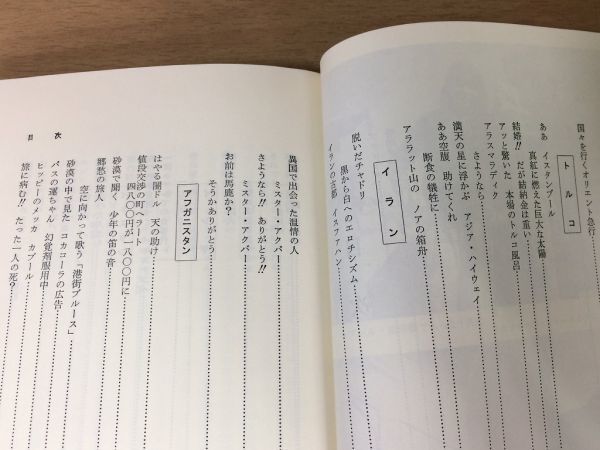 国々を行くオリエント急行
トルコ
ああ イスタンブール
真紅に燃えた巨大な太陽
結婚!! だが結納金は重い
アッと驚いた 本場のトルコ風呂
アラスマラディク
さようなら
満天の星に浮かぶ アジア・ハイウェイ
ああ空腹 助けてくれ
断食の犠牲に
アララット山の ノアの箱舟
イラン
脱いだチャドリ
黒から白へのエロチシズム
イランの古都 イスファハン
異国で出会った温情の人
さようなら!! ありがとう!!
ミスター・アクバー
ミスター・アクバー
お前は馬鹿か?
そうかありがとう
アフガニスタン
はやる闇ドル 天の助け
値段交渉の町ヘラート
四八〇〇円が一八〇〇円に
砂漠で聞く 少年の笛の音
郷愁の旅人
空に向かって歌う「港街ブルース」
砂漠の中で見た コカコーラの広告
バスの運ちゃん 幻覚剤服用中
ヒッピーのメッカ カブール
旅に病む!! たった一人の死?
目次